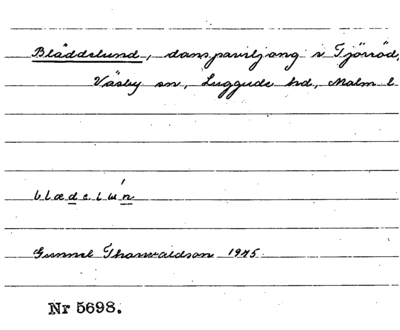 Bläddelund, danspaviljong i Tjörröd,
Väsby sn, Luggude hd, Malm l
blædelún
Gunnel Thorwaldson 1975.
Nr 5698.